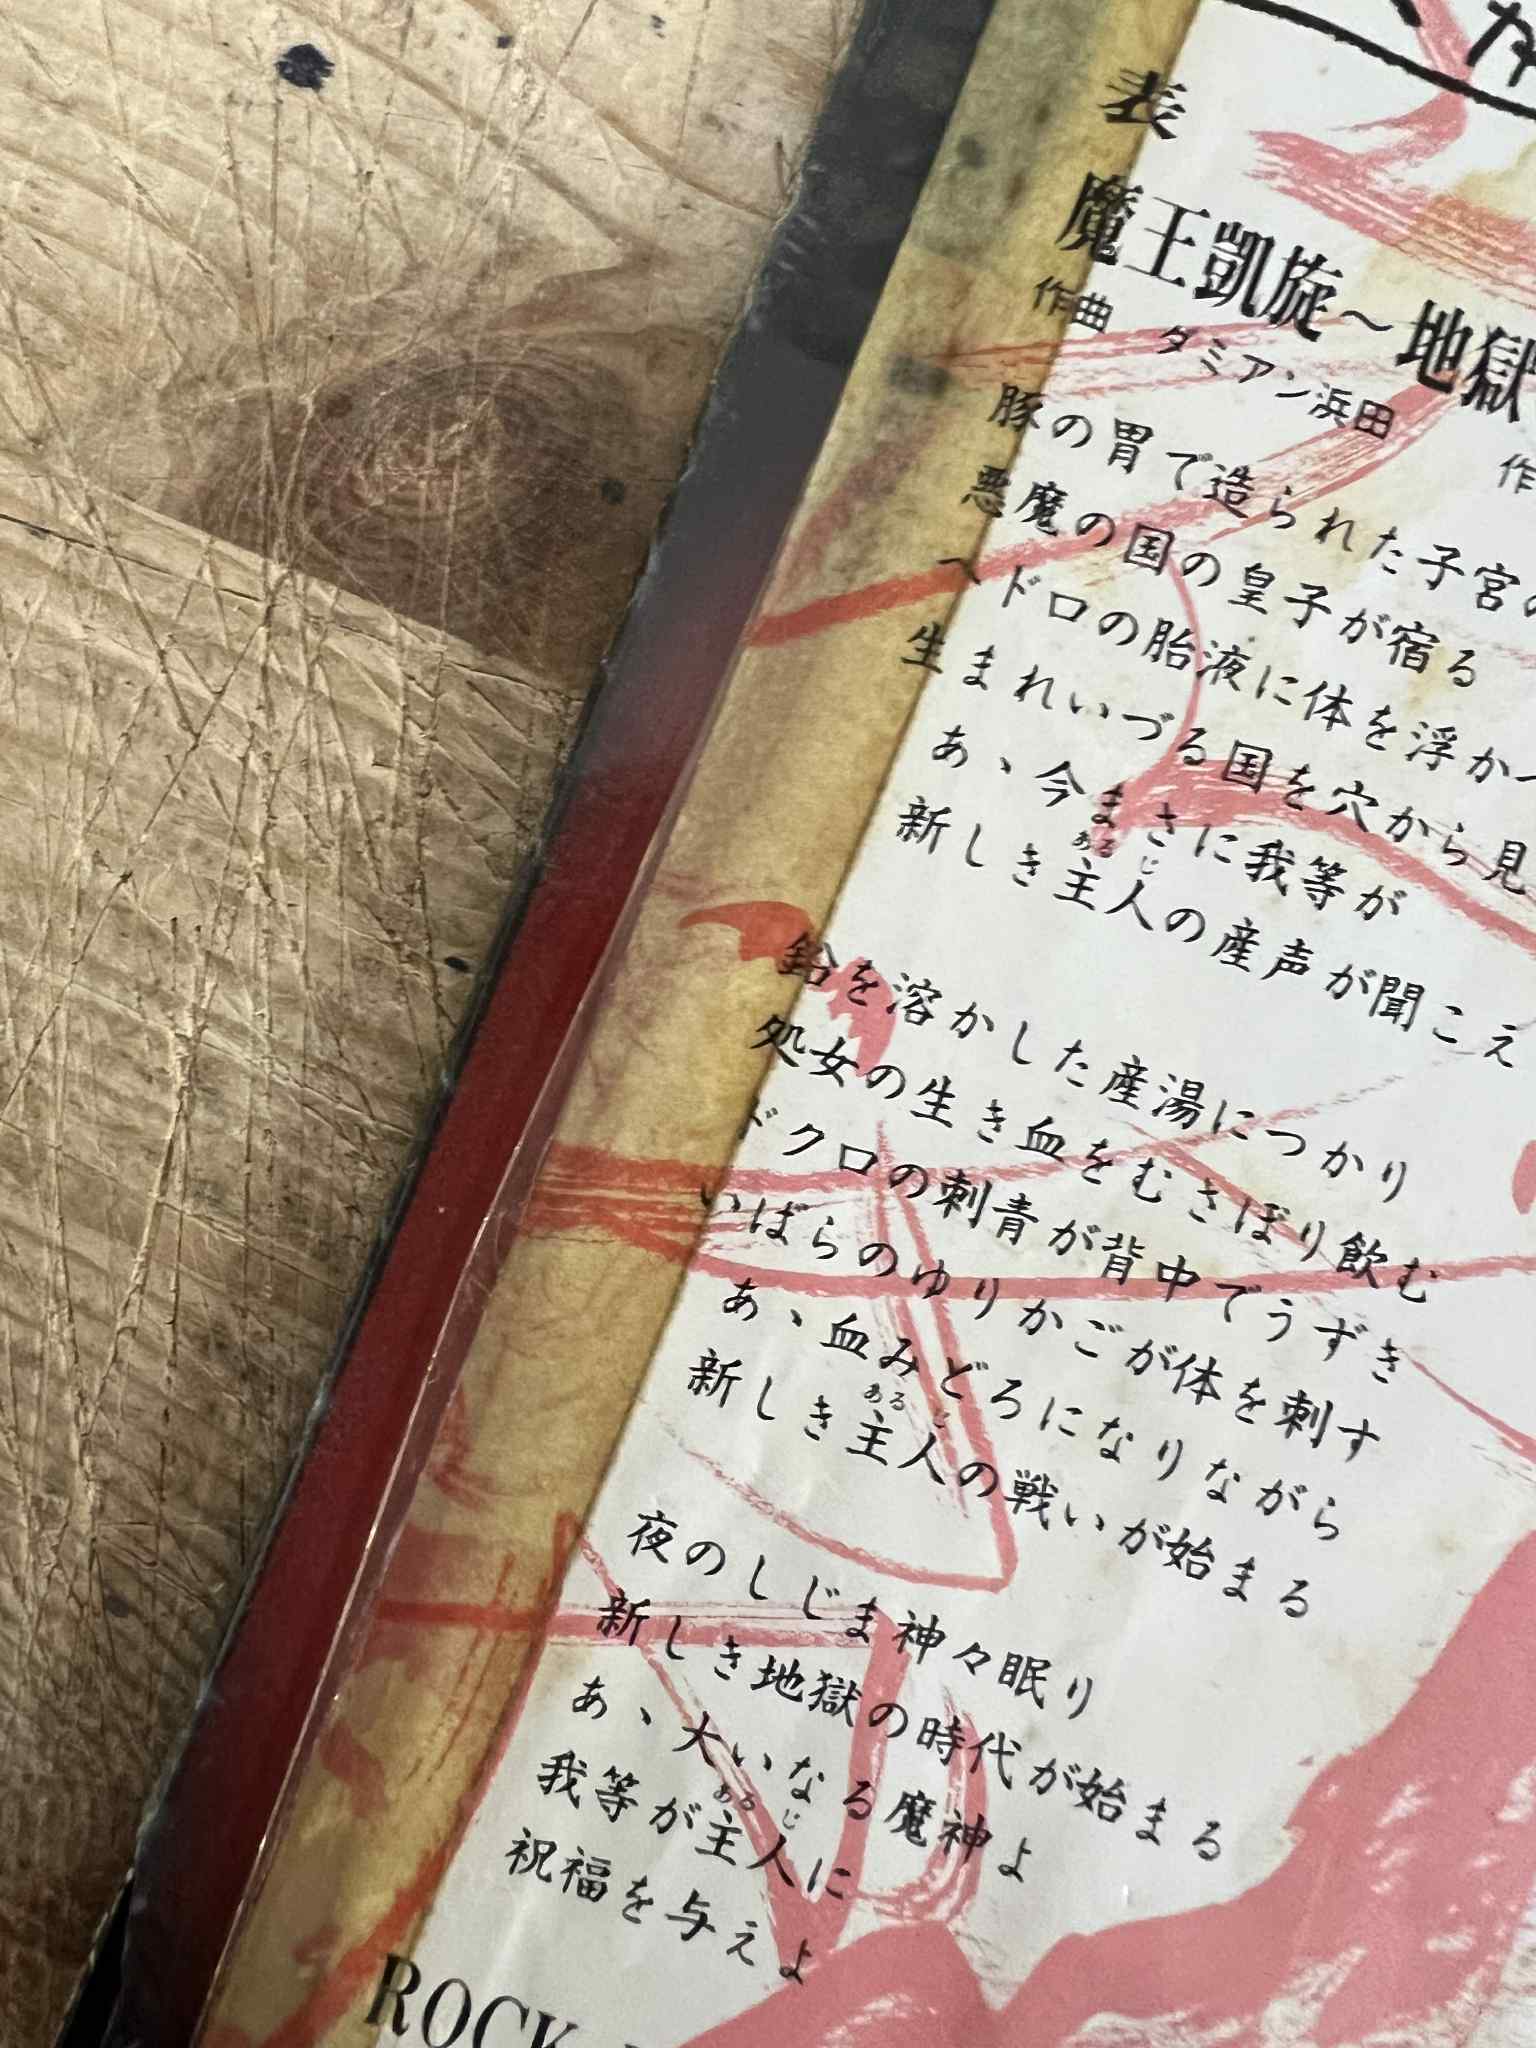 表
魔王凱旋〜地獄
作曲 ダミアン浜田
作
豚の胃で造られた子宮の
悪魔の国の皇子が宿る
ヘドロの胎液に体を浮か
生まれいづる国を穴から見
あゝ今まさに我等が
新しき主人の産声が聞こえ
鉛を溶かした産湯につかり
処女の生き血をむさぼり飲む
ドクロの刺青が背中でうずき
いばらのゆりかごが体を刺す
あゝ血みどろになりながら
新しき主人の戦いが始まる
夜のしじま神々眠り
新しき地獄の時代が始まる
あゝ大いなる魔神よ
我等が主人に
祝福を与えよ
ROCK